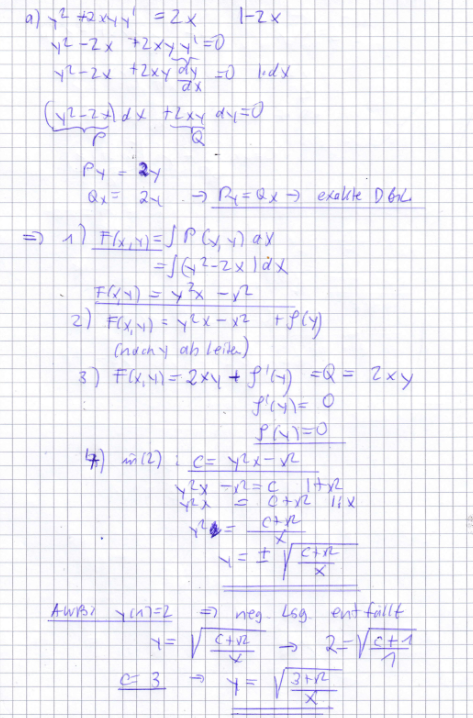 a) y² + 2xyy' = 2x |-2x
y² - 2x + 2xy y' = 0
y² - 2x + 2xy dy/dx = 0 |·dx
(y² - 2x) dx + 2xy dy = 0
P Q
Py = 2y
Qx = 2y → Py = Qx → exakte Dgl.
⇒ 1) F(x,y) = ∫ P(x,y) dx
= ∫(y² - 2x) dx
F(x,y) = y²x - x²
2) F(x,y) = y²x - x² + φ(y)
(nach y ableiten)
3) F(x,y) = 2xy + φ'(y) = Q = 2xy
φ'(y) = 0
φ(y) = 0
4) in (2) : C = y²x - x²
y²x - x² = C |+x²
y²x = C + x² |:x
y² = (C+x²)/x
y = ± √((C+x²)/x)
AWB: y(1)=2 ⇒ neg. Lsg. entfällt
y = √((C+x²)/x) → 2 = √((C+1)/1)
C = 3 → y = √((3+x²)/x)